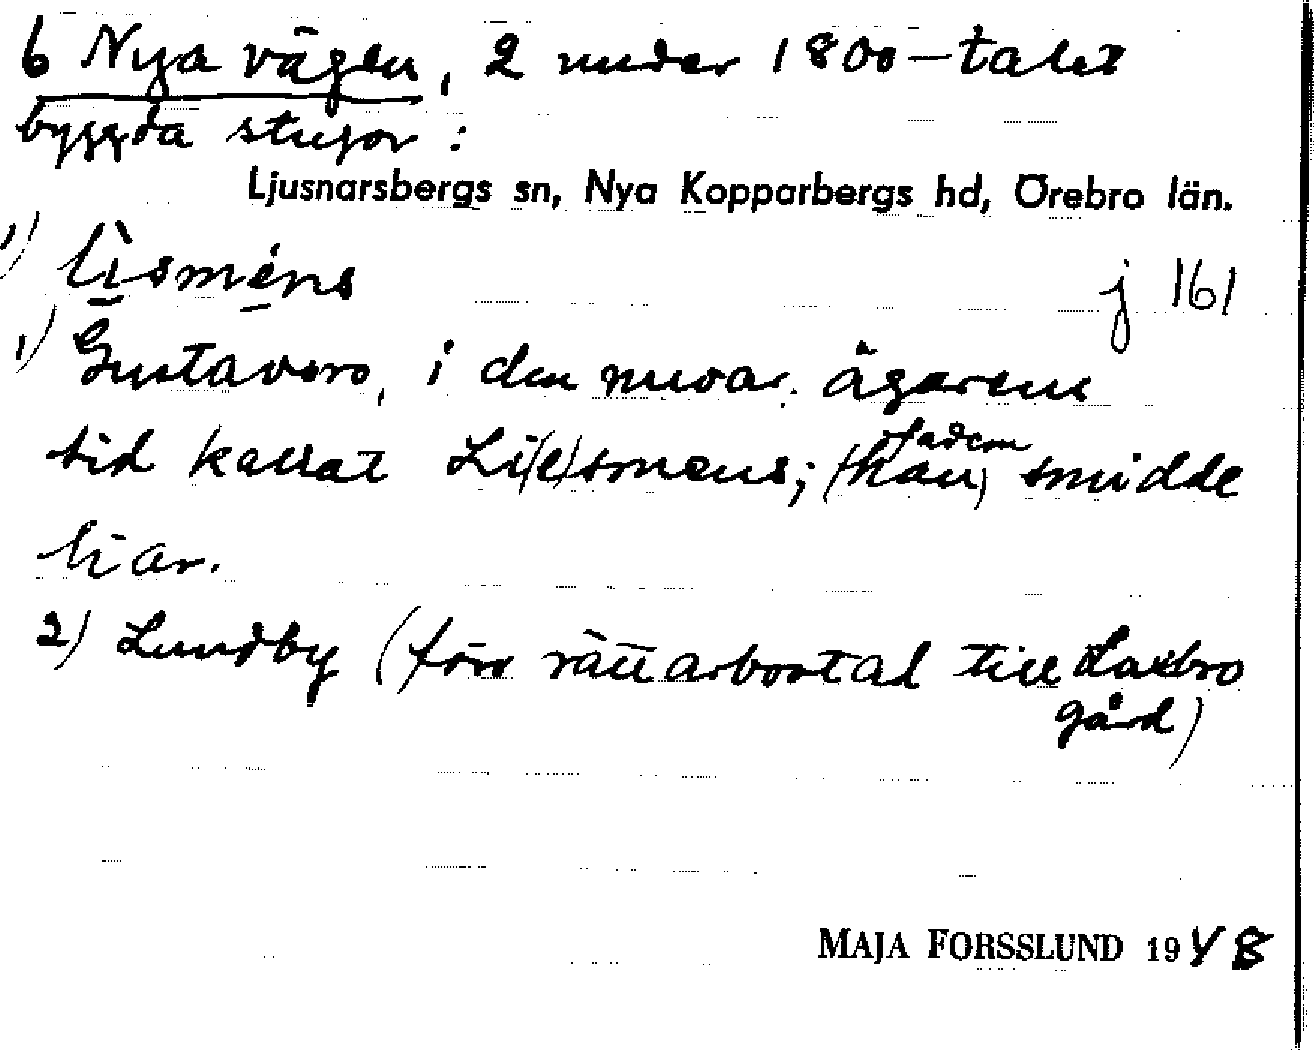 6 Nya vägen, 2 under 1800-talet
byggda stugor:
Ljusnarsbergs sn, Nya Kopparbergs hd, Örebro län.
1) lìsméns
j 161
1) Gustavsro, i den nuvar. ägarens
fadern
tid kallat Li(e)smens; (han) smidde
liar.
2) Lundby (förr rättarbostad till Laxbro
gård)
MAJA FORSSLUND 1948